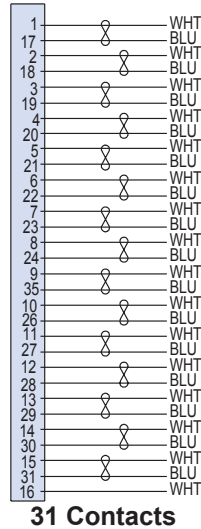 1 WHT
17 BLU
2 WHT
18 BLU
3 WHT
19 BLU
4 WHT
20 BLU
5 WHT
21 BLU
6 WHT
22 BLU
7 WHT
23 BLU
8 WHT
24 BLU
9 WHT
35 BLU
10 WHT
26 BLU
11 WHT
27 BLU
12 WHT
28 BLU
13 WHT
29 BLU
14 WHT
30 BLU
15 WHT
31 BLU
16 WHT
31 Contacts